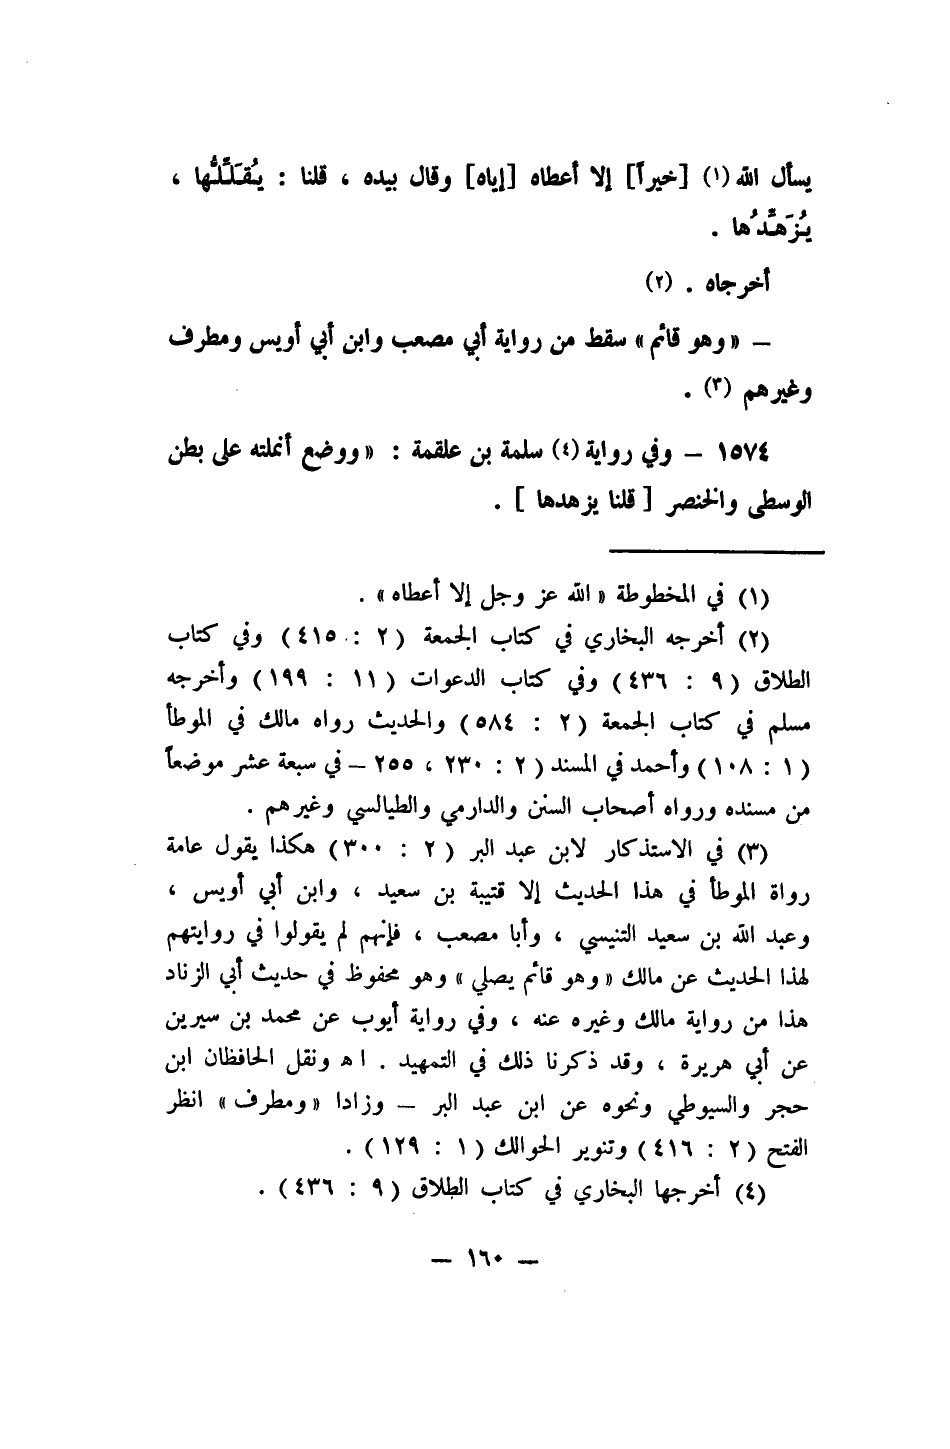 يسأل الله (١) [خيراً] إلا أعطاه [إياه] وقال بيده ، قلنا : يُقَلِّلُها ،
يُزَهِّدُها .
أخرجاه . (٢)
— « وهو قائم » سقط من رواية أبي مصعب وابن أبي أويس ومطرف
وغيرهم (٣) .
١٥٧٤ — وفي رواية (٤) سلمة بن علقمة : « ووضع أنملته على بطن
الوسطى والخنصر [ قلنا يزهدها ] .
(١) في المخطوطة « الله عز وجل إلا أعطاه » .
(٢) أخرجه البخاري في كتاب الجمعة ( ٢ : ٤١٥ ) وفي كتاب
الطلاق ( ٩ : ٤٣٦ ) وفي كتاب الدعوات ( ١١ : ١٩٩ ) وأخرجه
مسلم في كتاب الجمعة ( ٢ : ٥٨٤ ) والحديث رواه مالك في الموطأ
( ١ : ١٠٨ ) وأحمد في المسند ( ٢ : ٢٣٠ ، ٢٥٥ — في سبعة عشر موضعاً
من مسنده ورواه أصحاب السنن والدارمي والطيالسي وغيرهم .
(٣) في الاستذكار لابن عبد البر ( ٢ : ٣٠٠ ) هكذا يقول عامة
رواة الموطأ في هذا الحديث إلا قتيبة بن سعيد ، وابن أبي أويس ،
وعبد الله بن سعيد التنيسي ، وأبا مصعب ، فإنهم لم يقولوا في روايتهم
لهذا الحديث عن مالك « وهو قائم يصلي » وهو محفوظ في حديث أبي الزناد
هذا من رواية مالك وغيره عنه ، وفي رواية أيوب عن محمد بن سيرين
عن أبي هريرة ، وقد ذكرنا ذلك في التمهيد . ا هـ ونقل الحافظان ابن
حجر والسيوطي ونحوه عن ابن عبد البر — وزادا « ومطرف » انظر
الفتح ( ٢ : ٤١٦ ) وتنوير الحوالك ( ١ : ١٢٩ ) .
(٤) أخرجها البخاري في كتاب الطلاق ( ٩ : ٤٣٦ ) .
— ١٦٠ —